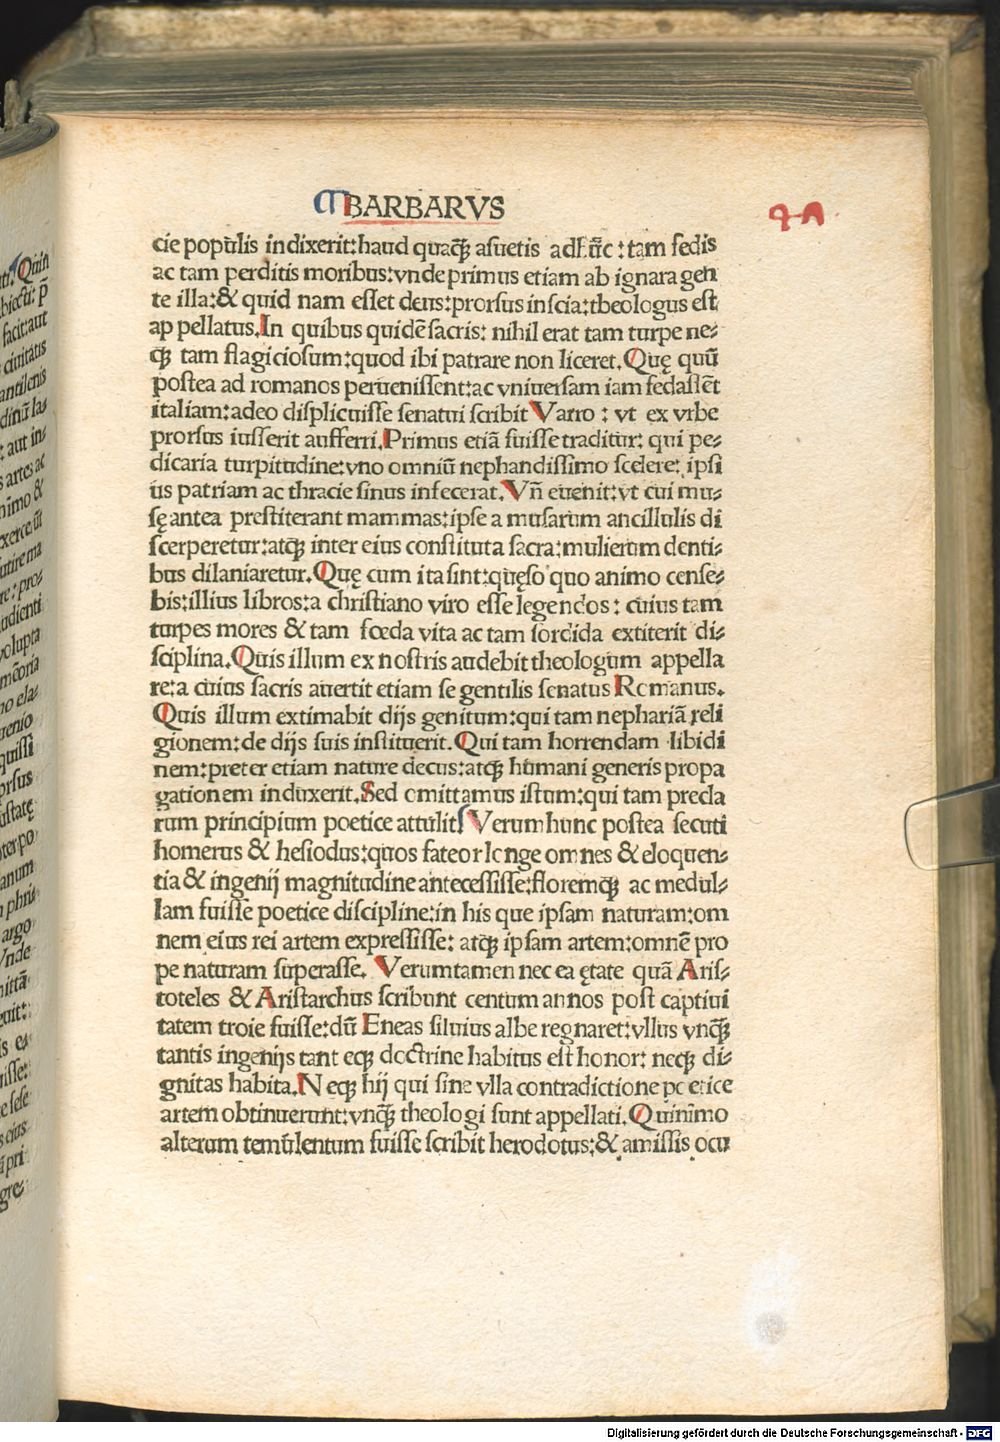 BARBARVS
cie populis indixerit:haud quaꝙ̃ asuetis adhũc:tam fedis
ac tam perditis moribus:vnde primus etiam ab ignara gen
te illa:& quid nam esset deus:prorsus inscia:theologus est
appellatus.In quibus quidẽ sacris: nihil erat tam turpe ne⸗
ꝙ̃ tam flagiciosum:quod ibi patrare non liceret.Quę quũ
postea ad romanos peruenissent:ac vniuersam iam fedassẽt
italiam:adeo displicuisse senatui scribit Varro: vt ex vrbe
prorsus iusserit aufferri.Primus etiã fuisse traditur: qui pe⸗
dicaria turpitudine:vno omniũ nephandissimo scelere: ipsi
us patriam ac thracie sinus infecerat.Vñ euenit:vt cui mu⸗
sę antea prestiterant mammas:ipse a musarum ancillulis di
scerperetur:atqꝫ inter eius constituta sacra:mulierum denti⸗
bus dilaniaretur.Quę cum ita sint:quęso quo animo cense⸗
bis:illius libros:a christiano viro esse legendos: cuius tam
turpes mores & tam fœda vita ac tam sordida extiterit di⸗
sciplina.Quis illum ex nostris audebit theologum appella
re:a cuius sacris auertit etiam se gentilis senatus Romanus.
Quis illum extimabit dijs genitum:qui tam nephariã reli
gionem:de dijs suis instituerit.Qui tam horrendam libidi
nem:preter etiam nature decus:atqꝫ humani generis propa
gationem induxerit.Sed omittamus istum:qui tam precla
rum principium poetice attulit Verum hunc postea secuti
homerus & hesiodus:quos fateor longe omnes & eloquen⸗
tia & ingenij magnitudine antecessisse:floremqꝫ ac medul⸗
lam fuisse poetice discipline:in his que ipsam naturam:om
nem eius rei artem expressisse: atqꝫ ipsam artem:omnẽ pro
pe naturam superasse. Verumtamen nec ea ętate quã Aris⸗
toteles & Aristarchus scribunt centum annos post captiui
tatem troie fuisse:dũ Eneas siluius albe regnaret:vllus vnꝙ̃
tantis ingenijs tant eqꝫ doctrine habitus est honor: neqꝫ di⸗
gnitas habita.Neqꝫ hij qui sine vlla contradictione poetice
artem obtinuerunt:vnꝙ̃ theologi sunt appellati.Quinimo
alterum temulentum fuisse scribit herodotus:& amissis ocu
Digitalisierung gefördert durch die Deutsche Forschungsgemeinschaft - DFG